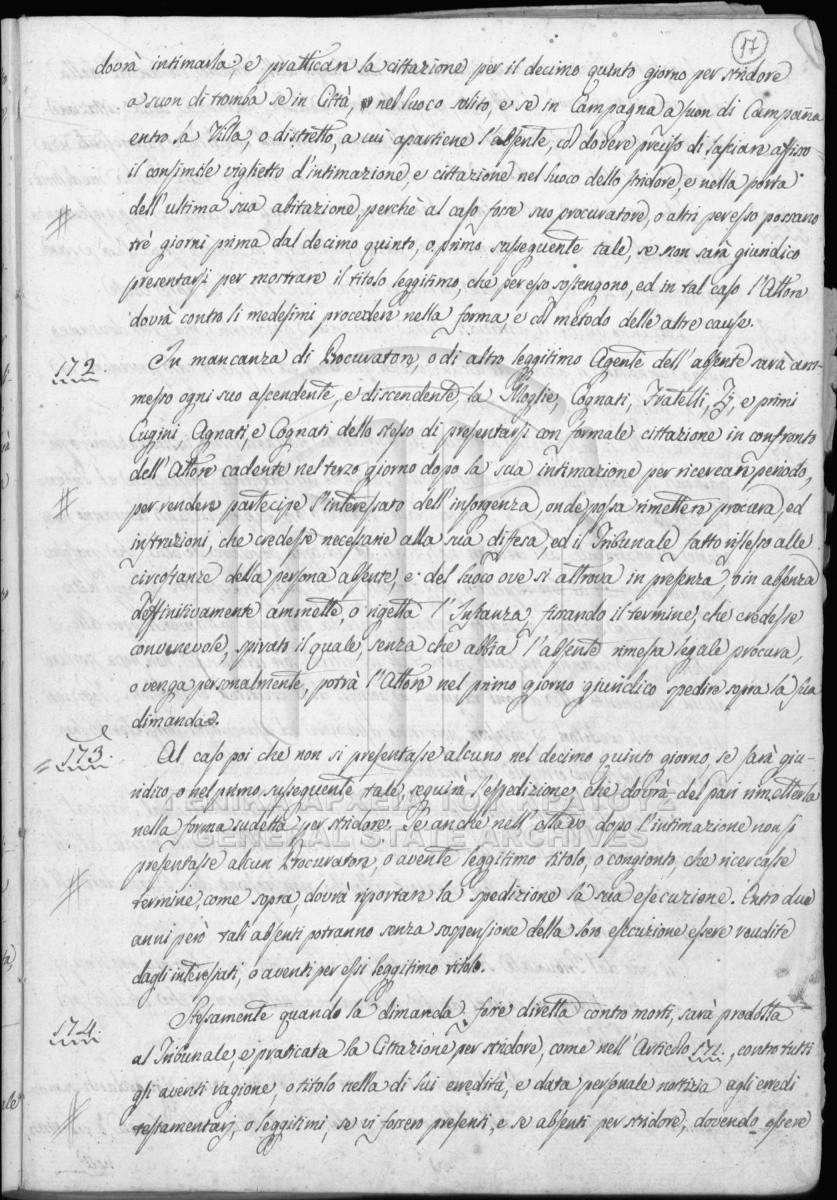 17
dovrà intimarla, e pratticar la cittazione per il decimo quinto giorno per stridore
a suon di tromba se in Città, nel luoco solito, e se in Campagna a suon di Campana
entro la Villa, o distretto, a cui apartiene l'absente, col dovere preciso di lasciare affisso
il consimile viglietto d'intimazione, e cittazione nel luoco dello stridore, e nella porta
dell'ultima sua abitazione, perchè al caso fosse suo procuratore, o altri per esso possano
trè giorni prima dal decimo quinto, o primo susseguente tale, se non sarà giuridico
presentarsi per mostrare il titolo leggitimo, che per esso sostengono, ed in tal caso l'Attore
dovrà contro li medesimi procedere nella forma e col metodo delle altre cause.
172. In mancanza di Procuratore, o di altro leggitimo Agente dell'absente sarà am-
messo ogni suo ascendente, e discendente, la Moglie, Cognati, Fratelli, Zj, e primi
Cugini, Agnati, e Cognati dello stesso di presentarsi con formale cittazione in confronto
dell'Attore cadente nel terzo giorno dopo la sua intimazione per ricercare periodo,
per rendere partecipe l'interessato dell'insorgenza, onde possa rimettere procura, ed
instruzioni, che credesse necessarie alla sua difesa, ed il Tribunale fatto riflesso alle
circostanze della persona absente, e del luoco ove si attrova in presenza, o in absenza
deffinitivamente ammette, o rigetta l'Instanza, fissando il termine, che credesse
convenevole, spirato il quale, senza che abbia l'absente rimessa legale procura,
o venga personalmente, potrà l'Attore nel primo giorno giuridico spedire sopra la sua
dimanda.
173. Al caso poi che non si presentasse alcuno nel decimo quinto giorno, se sarà giu-
ridico, o nel primo susseguente tale, seguirà l'espedizione, che dovrà del pari rimettersela
nella forma sudetta per stridore. Se anche nell'ottavo dopo l'intimazione non si
presentasse alcun Procuratore, o avente leggitimo titolo, o congionto, che ricercasse
termine, come sopra, dovrà riportare la spedizione la sua esecuzione. Entro due
anni però tali absenti potranno senza sospensione della loro esecuzione essere
dagli interessati, o aventi per essi leggitimo titolo.
174. Stessamente quando la dimanda fosse diretta contro morti, sarà prodotta
al Tribunale, e praticata la Cittazione per stridore, come nell'Articolo 171, contro tutti
gli aventi ragione, o titolo nella di lui eredità, e data personale nottizia agli eredi
testamentarj, o leggitimi, se vi fossero presenti, e se absenti per stridore, dovendo essere
ΓΕΝΙΚΑ ΑΡΧΕΙΑ ΤΟΥ ΚΡΑΤΟΥΣ
GENERAL STATE ARCHIVES